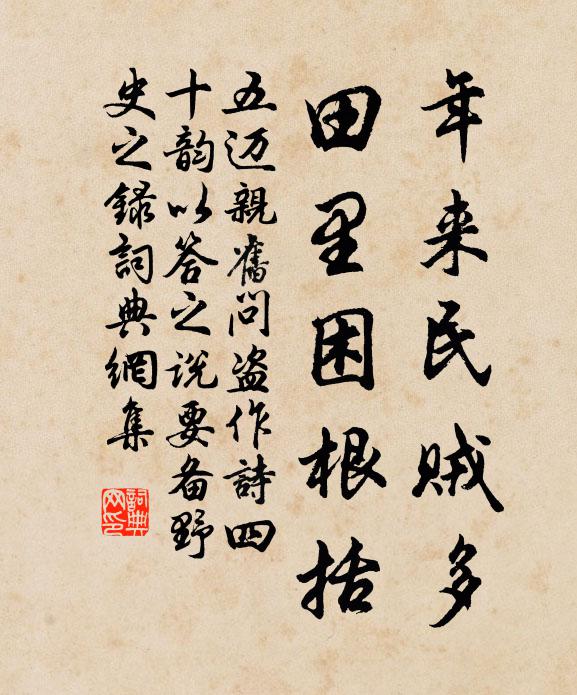 年来民贼多
田里困根括
五迈親舊问盗作詩四
十韵以答之说要备野
史之録詞典網集
詞典
网印